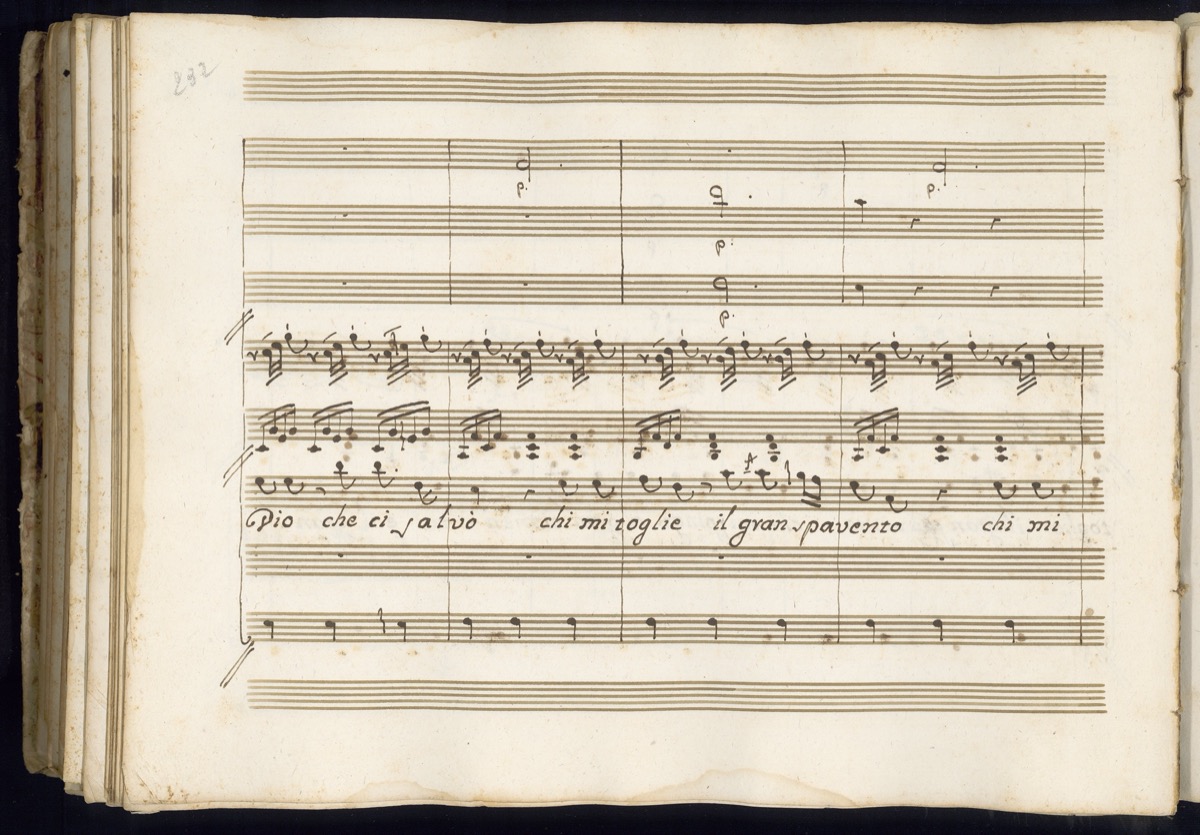 232
p.
p.
p.
p.
p.
Dio che ci salvò chi mi toglie il gran spavento chi mi